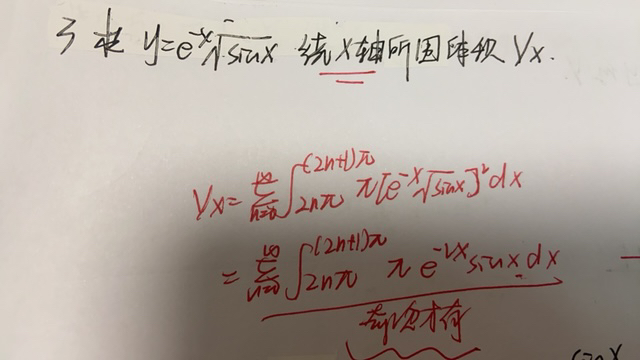 3 求 y=e^{-x}√sinx 绕X轴所围体积 Vx.
Vx = ∑_{n=0}^{+∞} ∫_{2nπ}^{(2n+1)π} π[e^{-x}√sinx]² dx
= ∑_{n=0}^{+∞} ∫_{2nπ}^{(2n+1)π} π e^{-2x} sinx dx